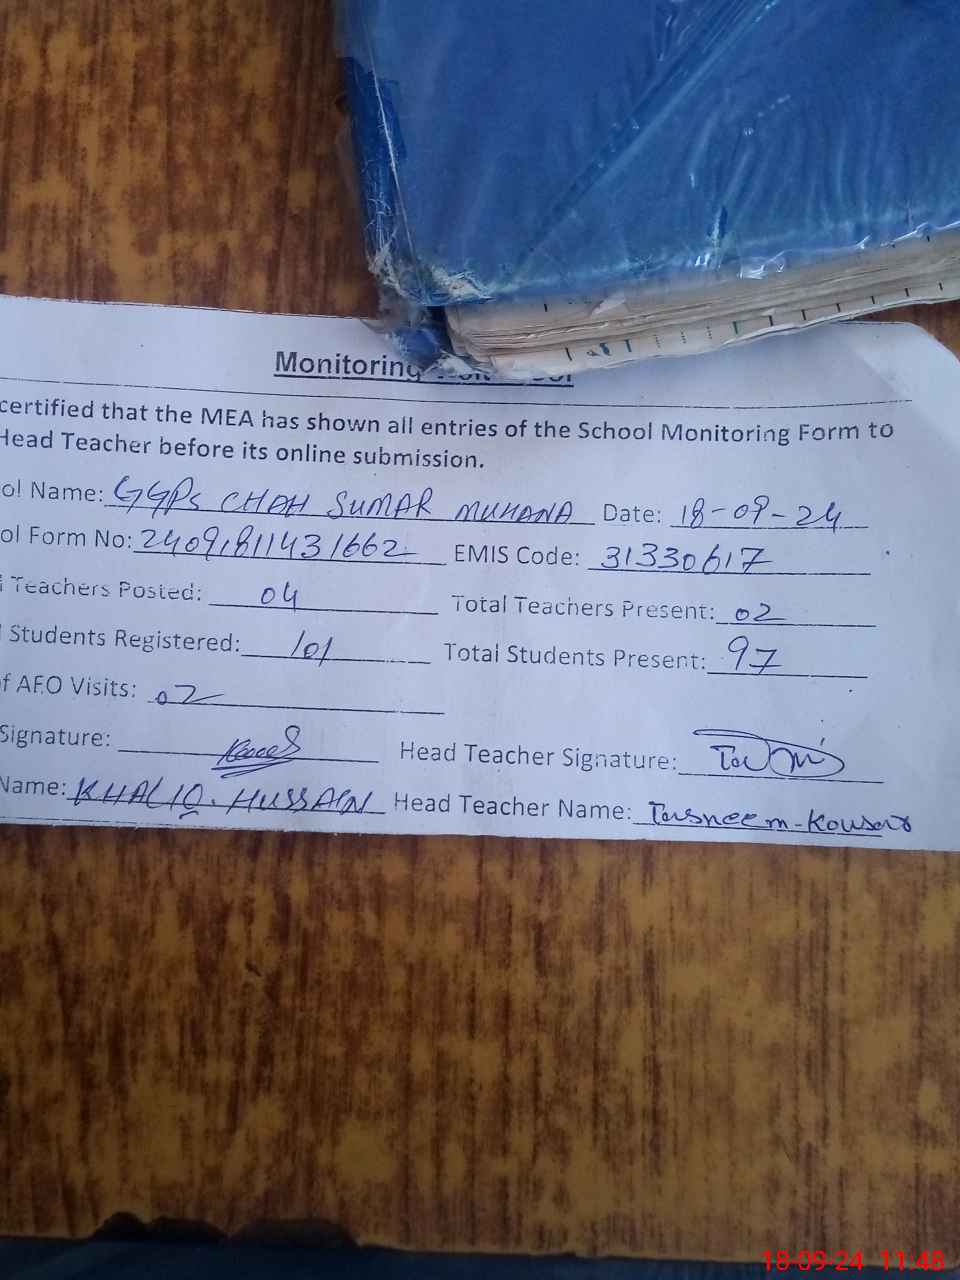 Monitoring
certified that the MEA has shown all entries of the School Monitoring Form to
Head Teacher before its online submission.
ol Name: GGPS CHAH SUMAR MUHANA Date: 18-09-24
ol Form No: 24091811431662 EMIS Code: 31330617
Teachers Posted: 04 Total Teachers Present: 02
Students Registered: 101 Total Students Present: 97
f AEO Visits: 02
Signature: Head Teacher Signature:
Name: KHALIQ. HUSSAIN Head Teacher Name: Tasneem-Kousar
18-09-24 11:48